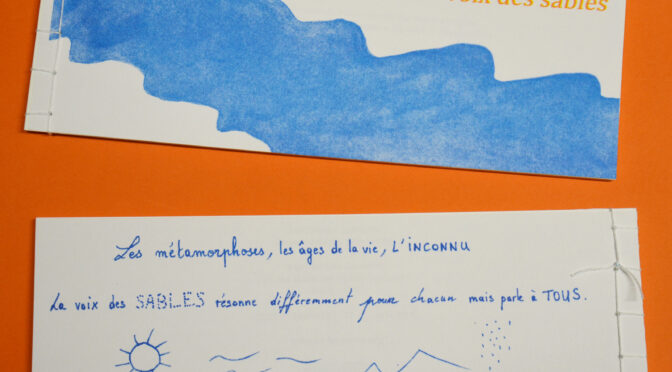 voix des sables
Les métamorphoses, les âges de la vie, L'INCONNU
La voix des SABLES résonne différemment pour chacun mais parle à TOUS.